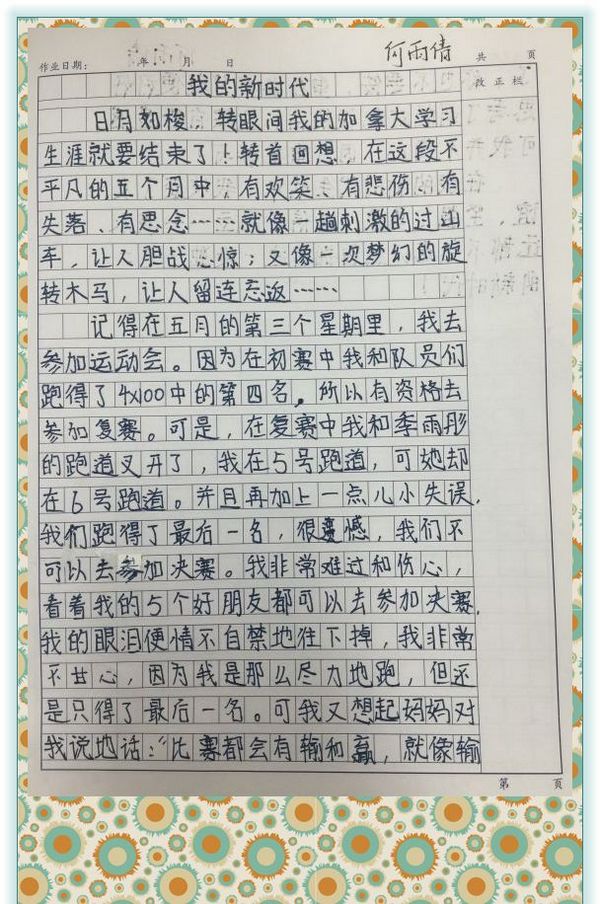 作业日期: 年 月 日 何雨倩 共 页
改正栏
我的新时代
日月如梭，转眼间我的加拿大学习
生涯就要结束了！转首回想，在这段不
平凡的五个月中，有欢笑、有悲伤、有
失落、有思念……就像一趟刺激的过山
车，让人胆战心惊；又像一次梦幻的旋
转木马，让人留连忘返……
记得在五月的第三个星期里，我去
参加运动会。因为在初赛中我和队员们
跑得了4x100中的第四名。所以有资格去
参加复赛。可是，在复赛中我和季雨彤
的跑道叉开了，我在5号跑道，可她却
在6号跑道。并且再加上一点儿小失误，
我们跑得了最后一名，很遗憾，我们不
可以去参加决赛。我非常难过和伤心，
看着我的5个好朋友都可以去参加决赛，
我的眼泪便情不自禁地往下掉，我非常
不甘心，因为我是那么尽力地跑，但还
是只得了最后一名。可我又想起妈妈对
我说地话：“比赛都会有输和赢，就像输
第 页